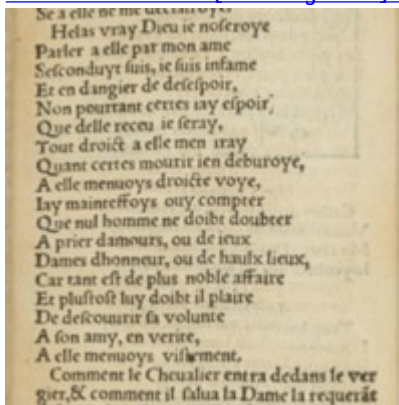 Se a elle ne me
Helas vray Dieu ie noseroye
Parler a elle par mon ame
Sesconduyt suis, ie suis infame
Et en dangier de desespoir,
Non pourtant certes iay espoir,
Que delle receu ie seray,
Tout droict a elle men iray
Quant certes mourir ien deburoye,
A elle menuoys droicte voye,
Iay mainteffoys ouy compter
Que nul homme ne doibt doubter
A prier damours, ou de ieux
Dames dhonneur, ou de haulx lieux,
Car tant est de plus noble affaire
Et plustost luy doibt il plaire
De descouurir sa volunte
A son amy, en verite,
A elle menuoys vistement.
Comment le Cheualier entra dedans le ver
gier, & comment il salua la Dame la requerāt